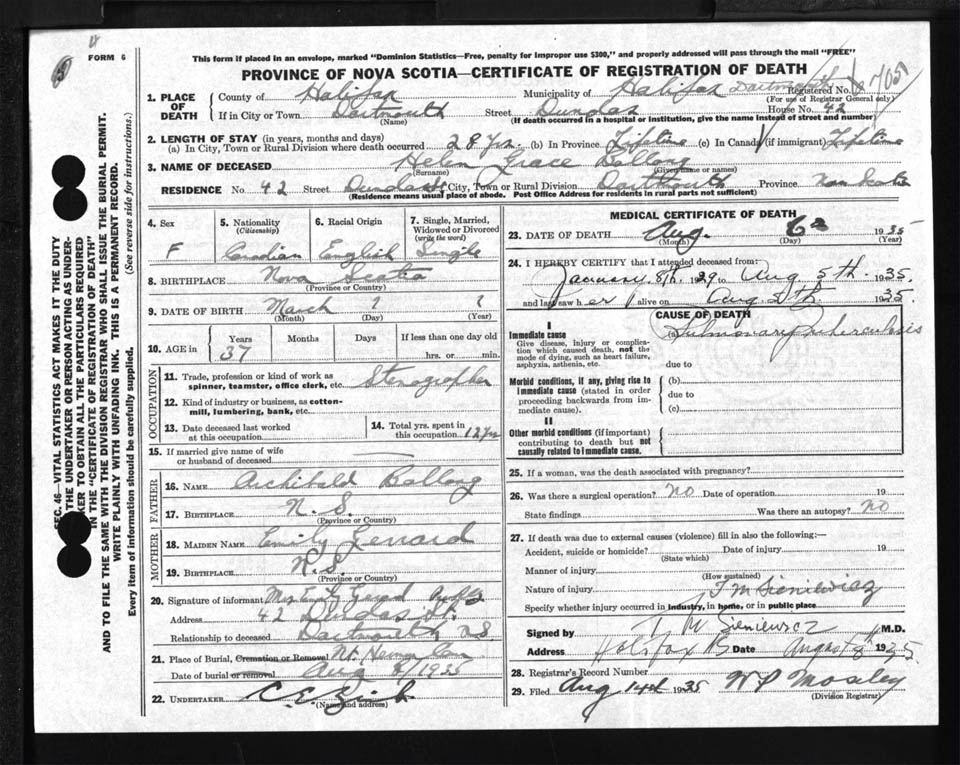 FORM 6
This form if placed in an envelope, marked "Dominion Statistics—Free, penalty for improper use $300," and properly addressed will pass through the mail "FREE"
PROVINCE OF NOVA SCOTIA—CERTIFICATE OF REGISTRATION OF DEATH
1. PLACE OF DEATH
County of Halifax Municipality of Halifax Dartmouth Registered No. 705
(For use of Registrar General only)
If in City or Town Dartmouth Street Dundas House No. 42
(Name) (If death occurred in a hospital or institution, give the name instead of street and number)
2. LENGTH OF STAY (in years, months and days)
(a) In City, Town or Rural Division where death occurred 28 yrs. (b) In Province Lifetime (c) In Canada (if immigrant) Lifetime
3. NAME OF DECEASED Helen Grace Bellong
(Surname) (Given name or names)
RESIDENCE No. 42 Street Dundas St City, Town or Rural Division Dartmouth Province Nova Scotia
(Residence means usual place of abode. Post Office Address for residents in rural parts not sufficient)
4. Sex
F
5. Nationality
(Citizenship)
Canadian
6. Racial Origin
English
7. Single, Married, Widowed or Divorced
(write the word)
Single
8. BIRTHPLACE Nova Scotia
(Province or Country)
9. DATE OF BIRTH March ? ?
(Month) (Day) (Year)
10. AGE in
Years Months Days If less than one day old
37 hrs. or min.
OCCUPATION
11. Trade, profession or kind of work as spinner, teamster, office clerk, etc. Stenographer
12. Kind of industry or business, as cotton-mill, lumbering, bank, etc.
13. Date deceased last worked at this occupation
14. Total yrs. spent in this occupation 12 yrs
15. If married give name of wife or husband of deceased
FATHER
16. NAME Archibald Bellong
17. BIRTHPLACE N. S.
(Province or Country)
MOTHER
18. MAIDEN NAME Emily
19. BIRTHPLACE N. S.
(Province or Country)
20. Signature of informant Mrs Emily
Address 42 Dundas St.
Relationship to deceased Dartmouth N.S.
21. Place of Burial, Cremation or Removal Mt. Hermon Cem
Date of burial or removal Aug 8/1935
22. UNDERTAKER C. E.
(Name and address)
MEDICAL CERTIFICATE OF DEATH
23. DATE OF DEATH Aug. 6th 1935
(Month) (Day) (Year)
24. I HEREBY CERTIFY that I attended deceased from:
January 8th. 1929 Aug 5th. 1935.
and last saw her alive on Aug 5th 1935.
CAUSE OF DEATH
I
Immediate cause
Give disease, injury or complication which caused death, not the mode of dying, such as heart failure, asphyxia, asthenia, etc.
(a) Pulmonary Tuberculosis
due to
Morbid conditions, if any, giving rise to immediate cause (stated in order proceeding backwards from immediate cause).
(b)
due to
(c)
II
Other morbid conditions (if important) contributing to death but not causally related to immediate cause.
25. If a woman, was the death associated with pregnancy?
26. Was there a surgical operation? no Date of operation 19
State findings Was there an autopsy? no
27. If death was due to external causes (violence) fill in also the following:—
Accident, suicide or homicide? Date of injury 19
(State which)
Manner of injury
(How sustained)
Nature of injury T M Sieniewicz
Specify whether injury occurred in industry, in home, or in public place
Signed by T M Sieniewicz M.D.
Address Halifax NS Date August 8 1935
28. Registrar's Record Number
29. Filed Aug 14th 1935 W P Moseley
(Division Registrar)
SEC. 46—VITAL STATISTICS ACT MAKES IT THE DUTY
THE UNDERTAKER OR PERSON ACTING AS UNDER-
KER TO OBTAIN ALL THE PARTICULARS REQUIRED
IN THE "CERTIFICATE OF REGISTRATION OF DEATH"
AND TO FILE THE SAME WITH THE DIVISION REGISTRAR WHO SHALL ISSUE THE BURIAL PERMIT.
WRITE PLAINLY WITH UNFADING INK. THIS IS A PERMANENT RECORD.
Every item of information should be carefully supplied. (See reverse side for instructions.)